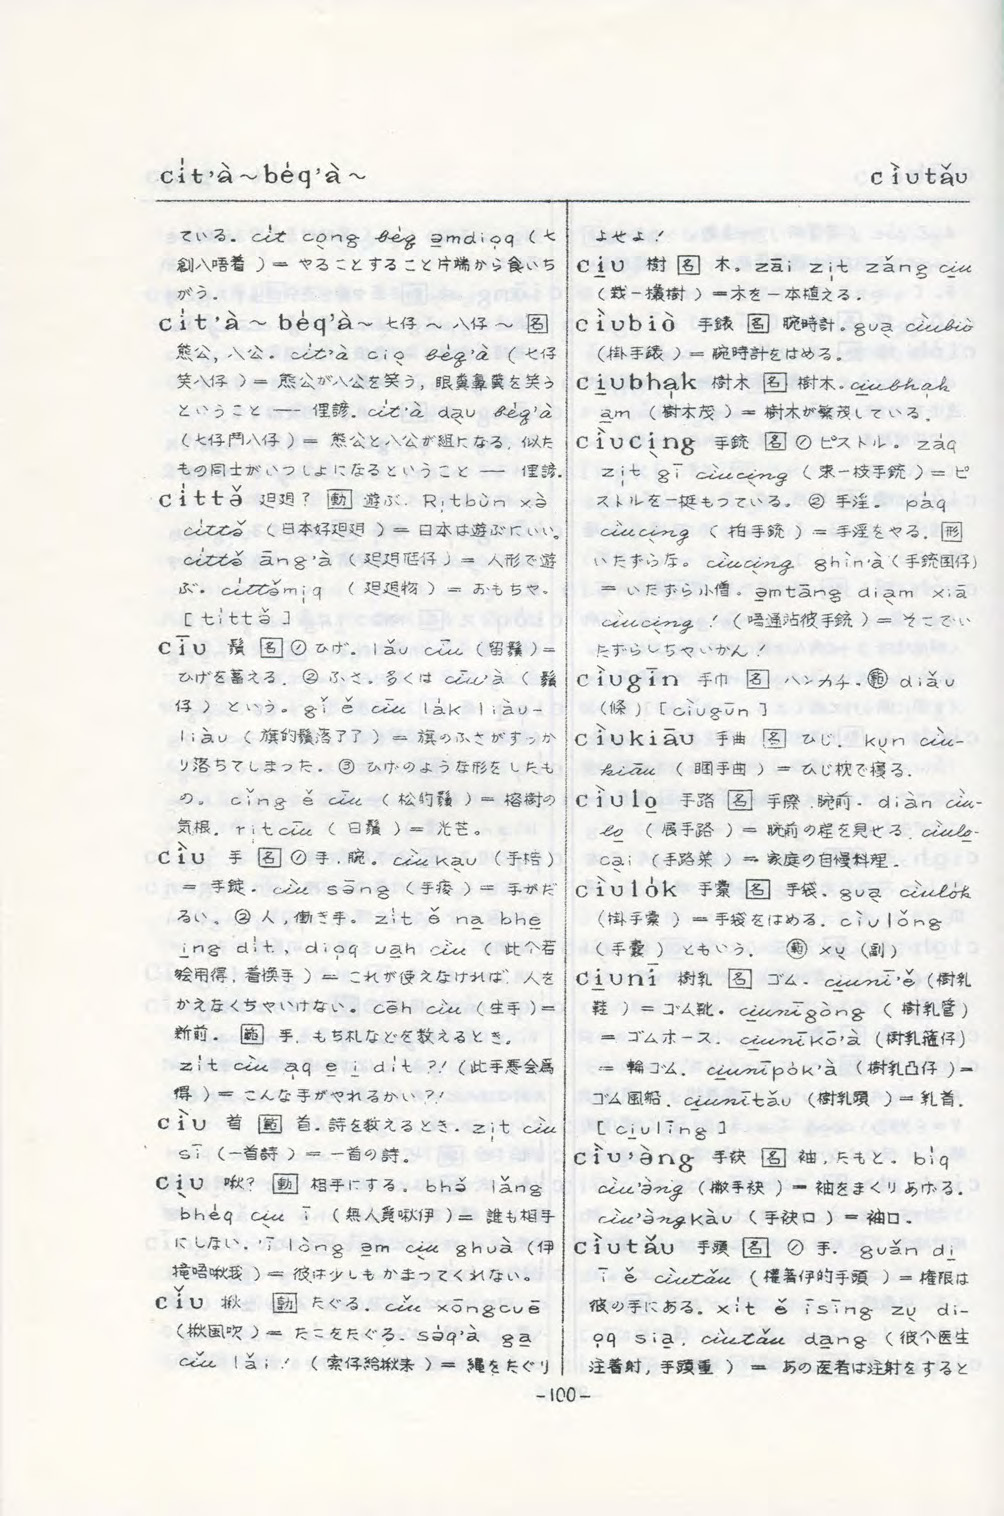 ci̍t'à～be̍q'à～
cìutǎu
ている。ci̍t còng be̍q ə̱mdio̱q（七
創八唔着）＝やることすること片端から食いち
がう。
ci̍t'à～be̍q'à～ 七仔～八仔～ 名
熊公，八公。ci̍t'à ciọ be̍q'à（七仔
笑八仔）＝熊公が八公を笑う，眼糞鼻糞を笑う
ということ ── 俚諺。ci̍t'à dạu be̍q'à
（七仔鬥八仔）＝熊公と八公が組になる。似た
もの同士がいっしょになるということ ── 俚諺。
cittə̌ 𨑨迌？ 動 遊ぶ。Ri̍tbùn xə̀
cittə̌（日本好𨑨迌）＝日本は遊ぶにいい。
cittə̌ āng'à（𨑨迌尪仔）＝人形で遊
ぶ。cittə̌mi̍q（𨑨迌物）＝おもちゃ。
[tittə̌]
cīu 鬚 名 ①ひげ。lǎu cīu（留鬚）＝
ひげを蓄える。②ふさ。多くは cīu'à（鬚
仔）という。gǐ ě cīu la̍k liàu-
liàu（旗的鬚落了了）＝旗のふさがすっか
り落ちてしまった。③ひげのような形をしたも
の。cǐng ě cīu（松的鬚）＝榕樹の
気根。ri̍tcīu（日鬚）＝光芒。
cìu 手 名 ①手，腕。cìukạu（手梏）
＝手錠。cìu sə̄ng（手痠）＝手がだ
るい。②人，働き手。zi̍t ě na̱ bhe̱
i̱ng dit, dio̱q ua̱h cìu（此个若
𣍐用得，着換手）＝これが使えなければ，人を
かえなくちゃいけない。cēh cìu（生手）＝
新前。範 手。もち札などを数えるとき。
zi̍t cìu ạq e̱ i̱ dit?!（此手悪会為
得）＝こんな手がやれるかい?!
cìu 首 範 首。詩を数えるとき。zi̍t cìu
sī（一首詩）＝一首の詩。
cịu 啾？ 動 相手にする。bhə̌ lǎng
bhe̍q cịu ī（無人覓啾伊）＝誰も相手
にしない。ī lòng ə̱m cịu ghuà（伊
攏唔啾我）＝彼は少しもかまってくれない。
cǐu 揪 動 たぐる。cǐu xōngcuē
（揪風吹）＝たこをたぐる。sə̣q'à ga̱
cǐu lǎi!（索仔給揪来）＝縄をたぐり
よせよ！
ci̱u 樹 名 木。zāi zi̍t zǎng ci̱u
（栽一欉樹）＝木を一本植える。
cìubiò 手錶 名 腕時計。guạ cìubiò
（掛手錶）＝腕時計をはめる。
ci̱ubha̍k 樹木 名 樹木。ci̱ubha̍k
a̱m（樹木茂）＝樹木が繁茂している。
cìucịng 手銃 名 ①ピストル。záq
zi̍t gī cìucịng（束一枝手銃）＝ピ
ストルを一挺もっている。②手淫。páq
cìucịng（拍手銃）＝手淫をやる。形
いたずらな。cìucịng ghìn'à（手銃囝仔）
＝いたずら小僧。ə̱mtāng diạm xiā
cìucịng！（唔通站彼手銃）＝そこでい
たずらしちゃいかん！
cìugīn 手巾 名 ハンカチ。範 diǎu
（條）[cìugūn]
cìukiāu 手曲 名 ひじ。kụn cìu-
kiāu（睏手曲）＝ひじ枕で寝る。
cìulo̱ 手路 名 手際，腕前。diàn cìu-
lo̱（展手路）＝腕前の程を見せる。cìulo̱-
cại（手路菜）＝家庭の自慢料理。
cìulo̍k 手橐 名 手袋。guạ cìulo̍k
（掛手橐）＝手袋をはめる。cìulǒng
（手囊）ともいう。範 xụ（副）
ci̱unī 樹乳 名 ゴム。ci̱unī'ě（樹乳
鞋）＝ゴム靴。ci̱unīgòng（樹乳管）
＝ゴムホース。ci̱unīkō'à（樹乳箍仔）
＝輪ゴム。ci̱unīpo̍k'à（樹乳凸仔）＝
ゴム風船。ci̱unītǎu（樹乳頭）＝乳首。
[ci̱ulīng]
cìu'ə̀ng 手䘼 名 袖，たもと。bi̍q
cìu'ə̀ng（撇手䘼）＝袖をまくりあげる。
cìu'ə̀ngkàu（手䘼口）＝袖口。
cìutǎu 手頭 名 ①手。guǎn di̱
ī ě cìutǎu（権著伊的手頭）＝権限は
彼の手にある。xit ě īsīng zụ di-
o̱q sia̱, cìutǎu da̱ng（彼个医生
注着射，手頭重）＝あの医者は注射をすると
-100-